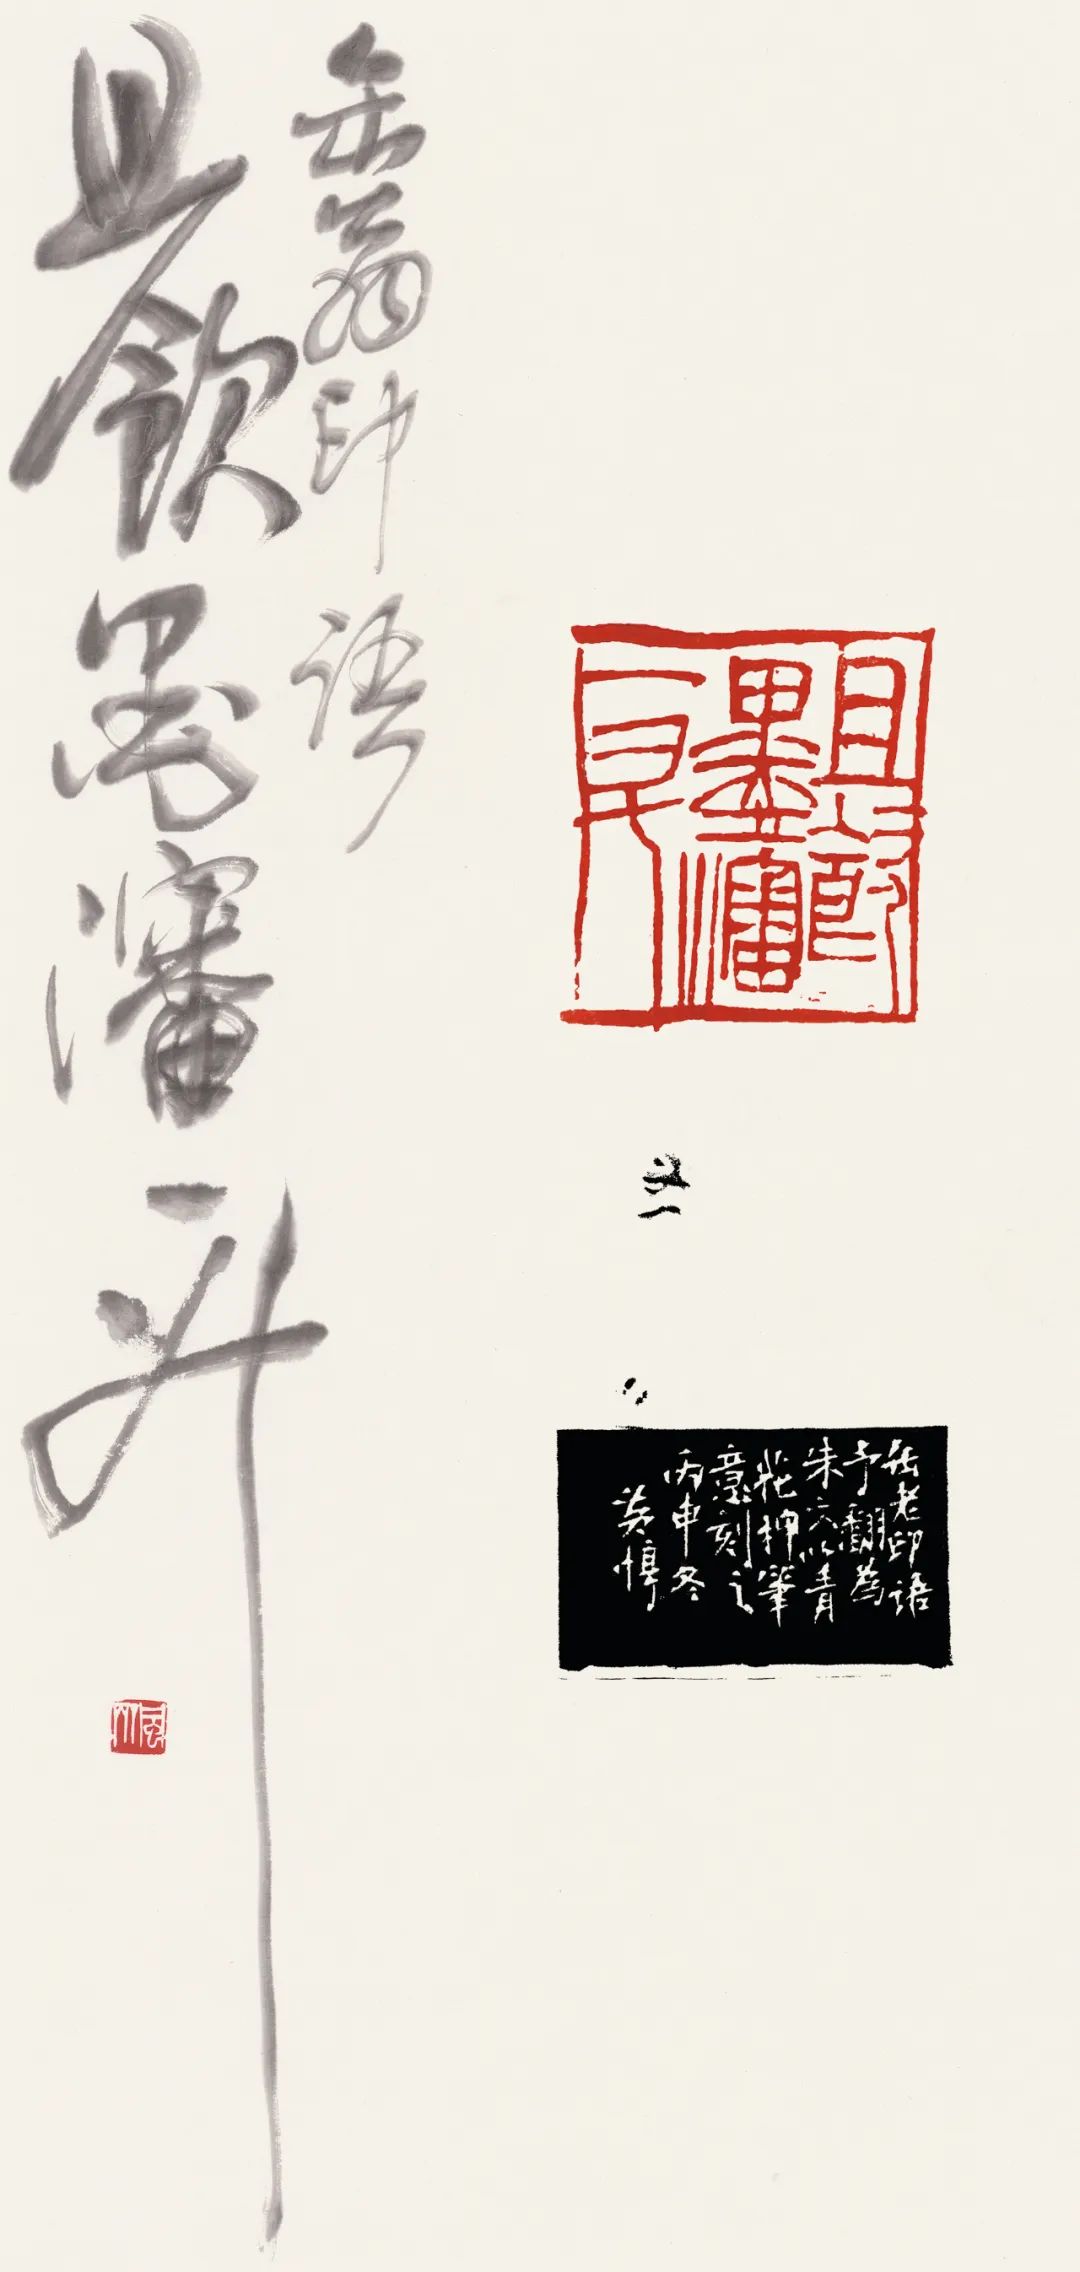 且飲
墨瀋
一升
缶老印語
予翻為
朱文以青
花押筆
意刻之
丙申冬
缶翁印語
且飲墨瀋一升